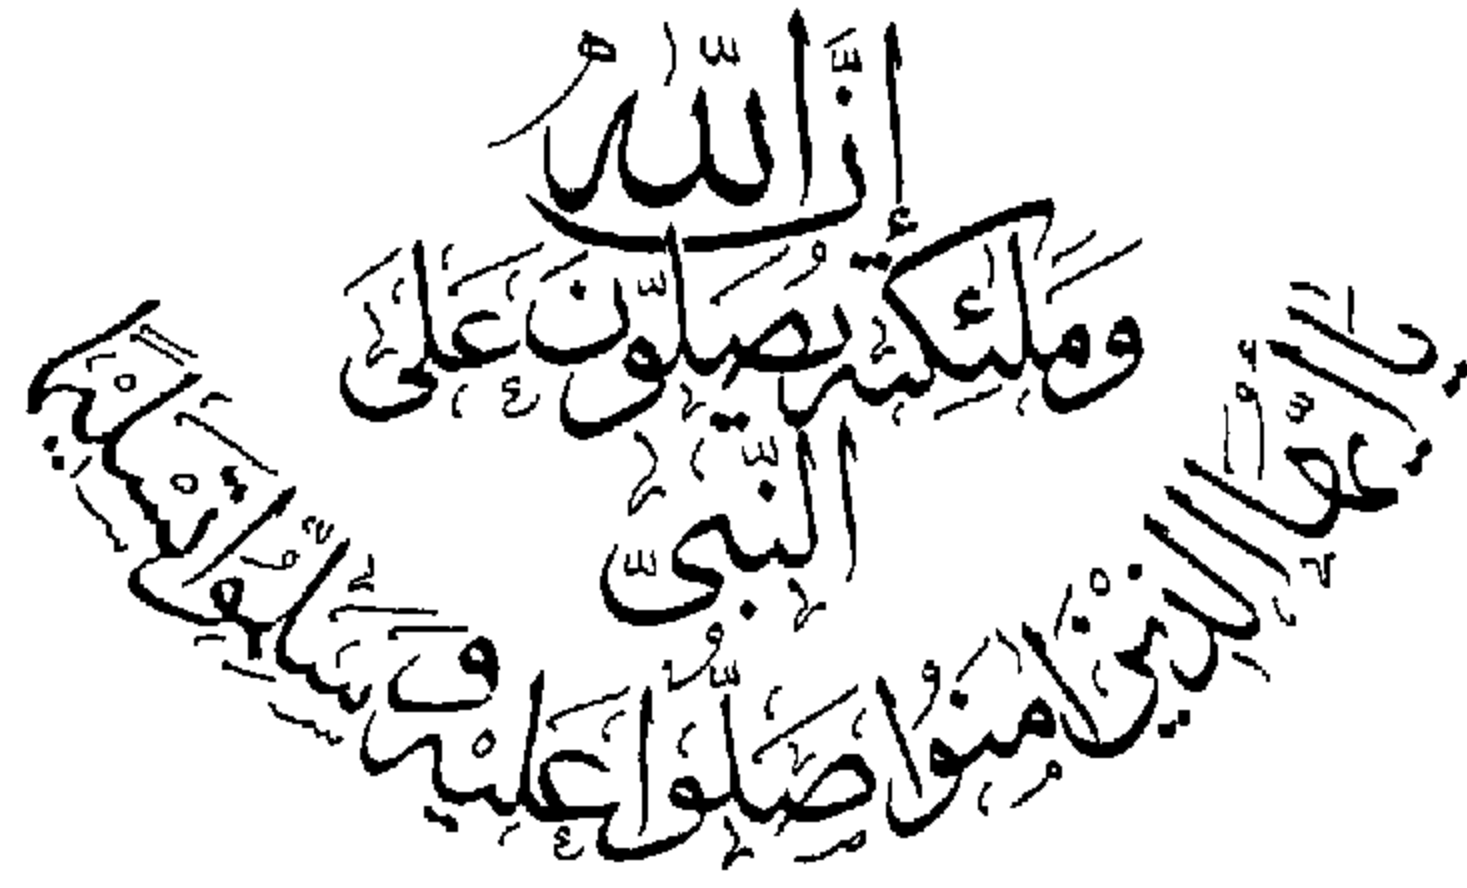 إِنَّ اللّٰهَ
وَمَلٰئِكَتَهُ يُصَلُّونَ عَلَى
النَّبِيِّ
يَا أَيُّهَا الَّذِينَ اٰمَنُوا صَلُّوا عَلَيْهِ وَسَلِّمُوا تَسْلِيمًا